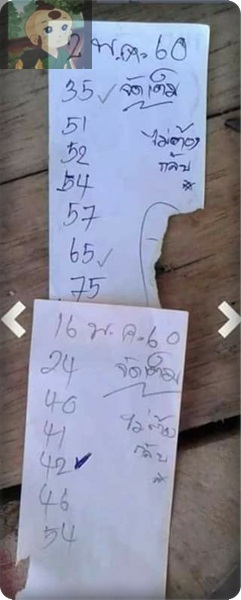 2 พ.ค. 60
35✓ จัดเต็ม
51
52 ไม่ต้อง
54 กลับ
57
65✓
75
16 พ.ค. 60
24 จัดเต็ม
40
41 ไม่ต้อง
42✓ กลับ
46
54